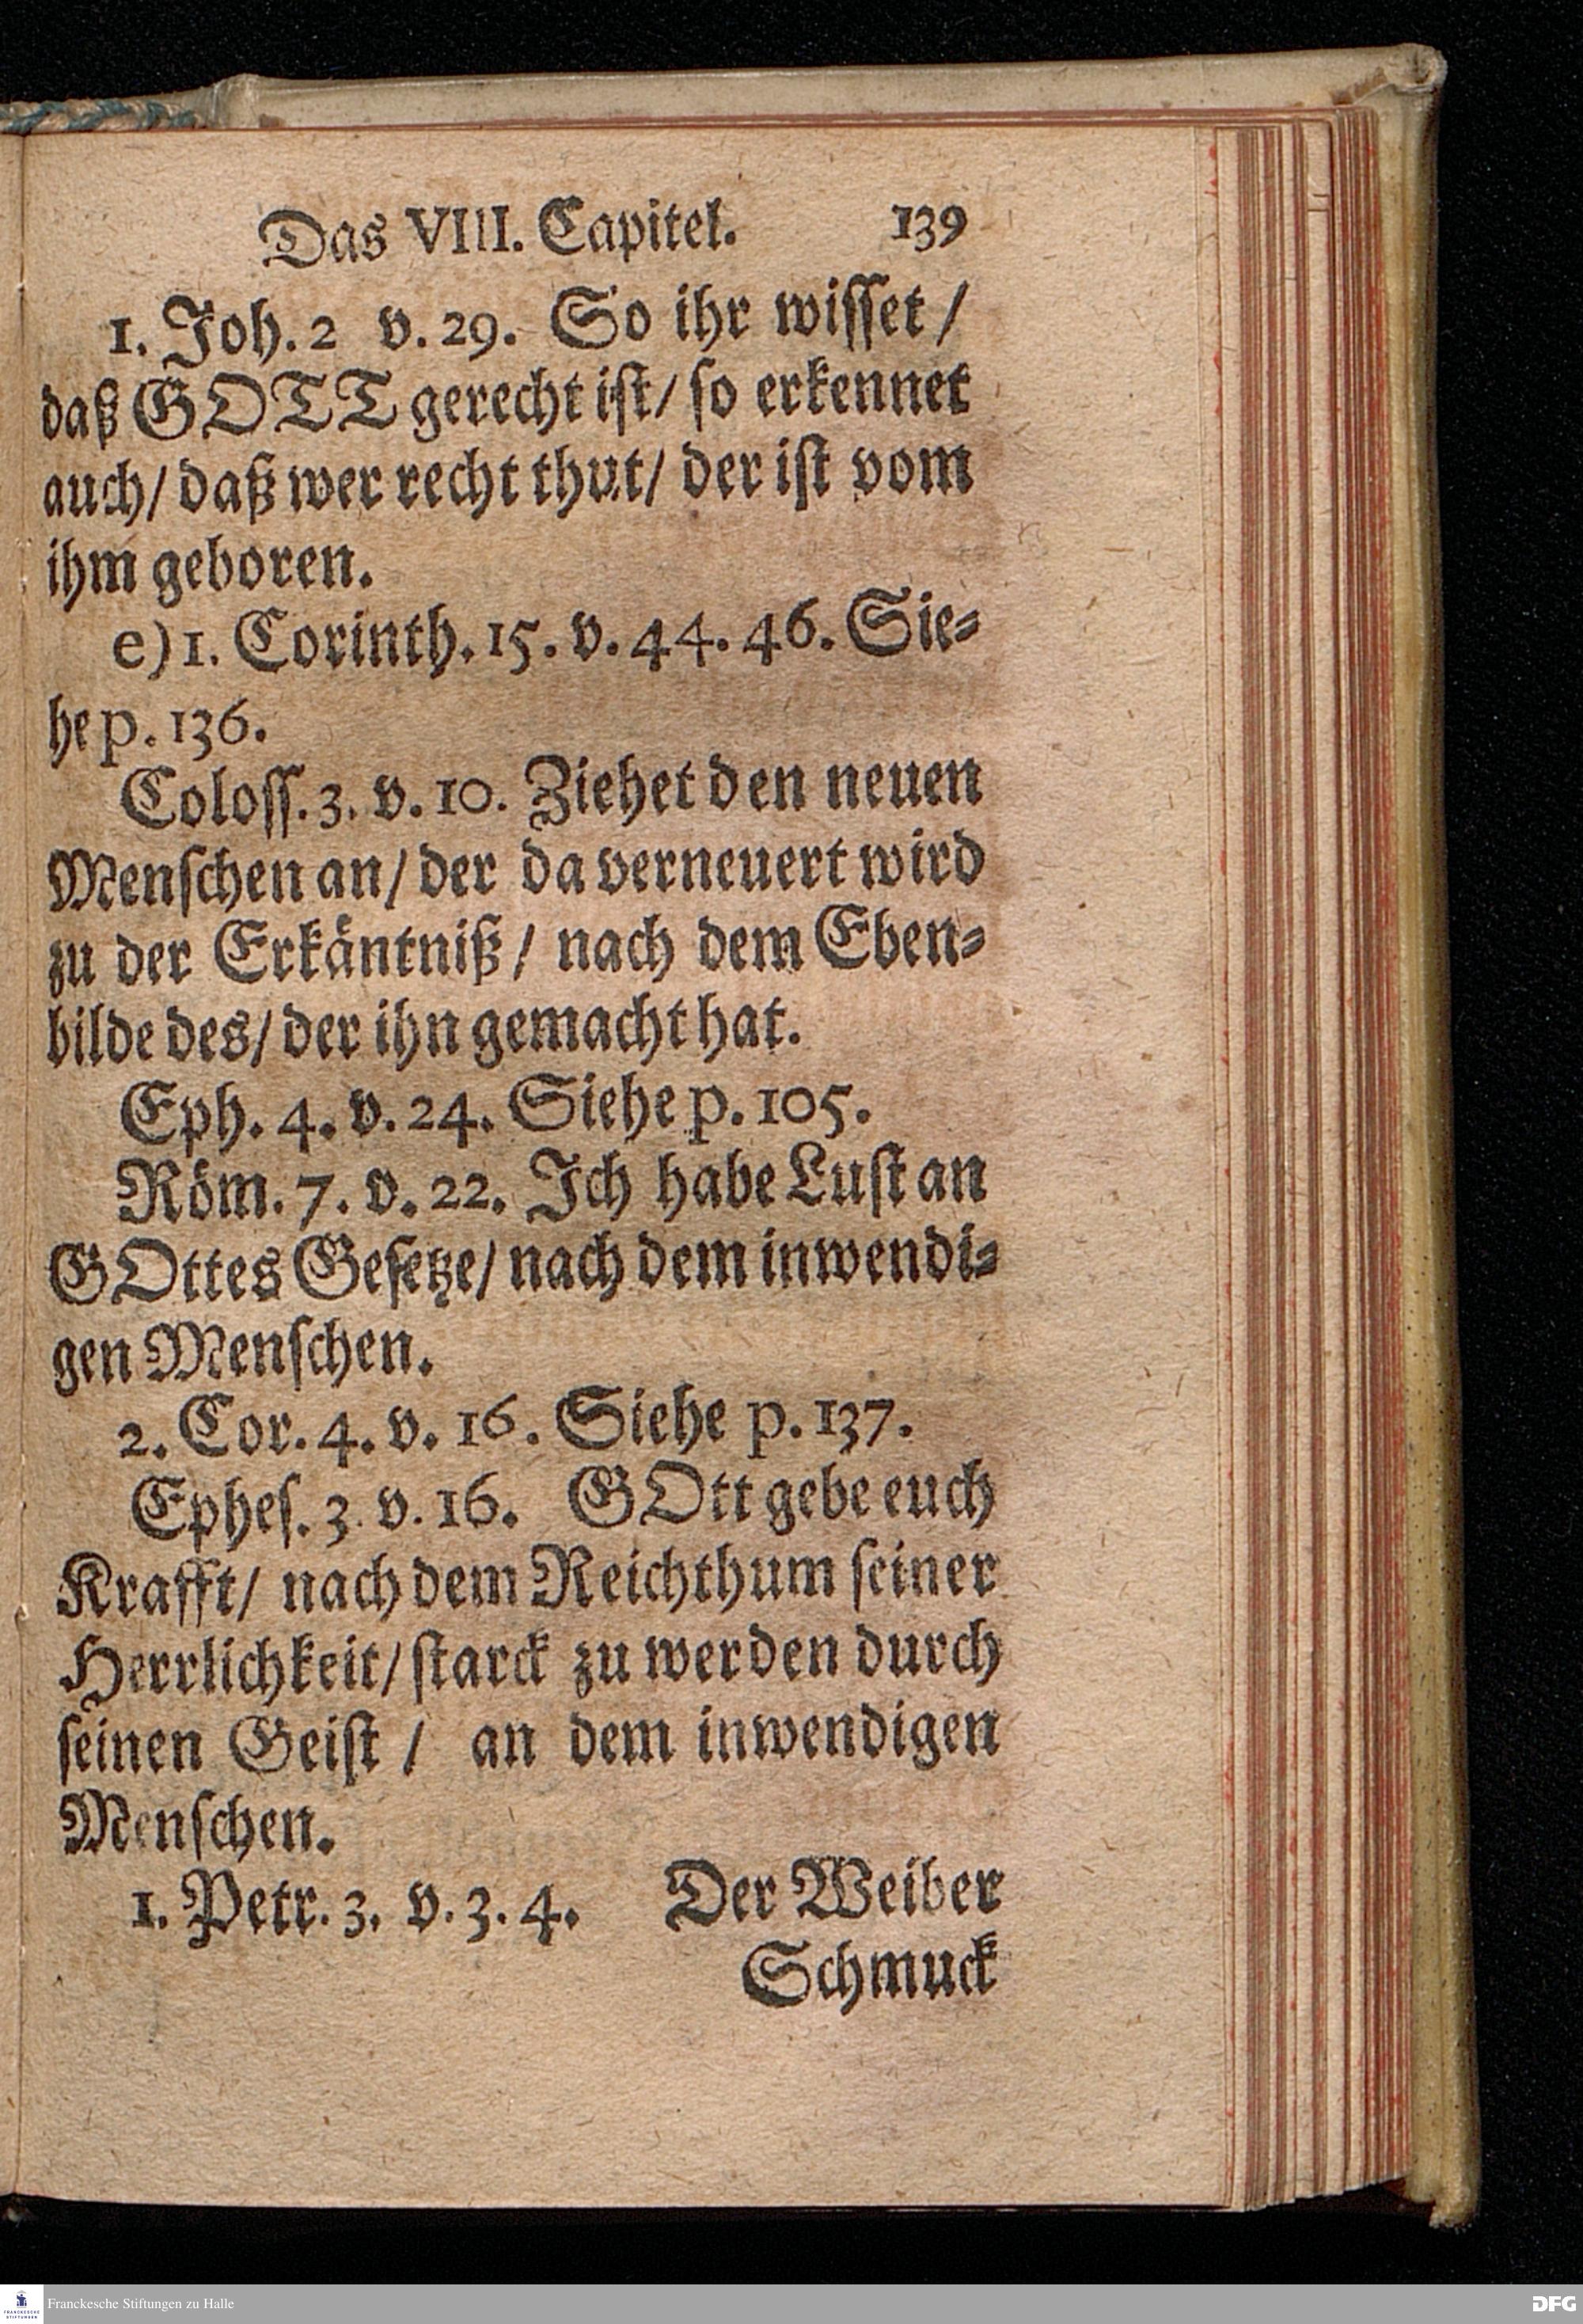 Das VIII. Capitel. 139
1. Joh. 2 v. 29. So ihr wisset /
daß GOTT gerecht ist/ so erkennet
auch/ daß wer recht thut/ der ist vom
ihm geboren.
e) 1. Corinth. 15. v. 44. 46. Sie-
he p. 136.
Coloss. 3. v. 10. Ziehet den neuen
Menschen an/ der da verneuert wird
zu der Erkäntniß / nach dem Eben-
bilde des/ der ihn gemacht hat.
Eph. 4. v. 24. Siehe p. 105.
Röm. 7. v. 22. Ich habe Lust an
GOttes Gesetze/ nach dem inwendi-
gen Menschen.
2. Cor. 4. v. 16. Siehe p. 137.
Ephes. 3. v. 16. GOtt gebe euch
Krafft/ nach dem Reichthum seiner
Herrlichkeit/ starck zu werden durch
seinen Geist / an dem inwendigen
Menschen.
1. Petr. 3. v. 3. 4. Der Weiber
Schmuck
FRANCKESCHE STIFTUNGEN
Franckesche Stiftungen zu Halle
DFG